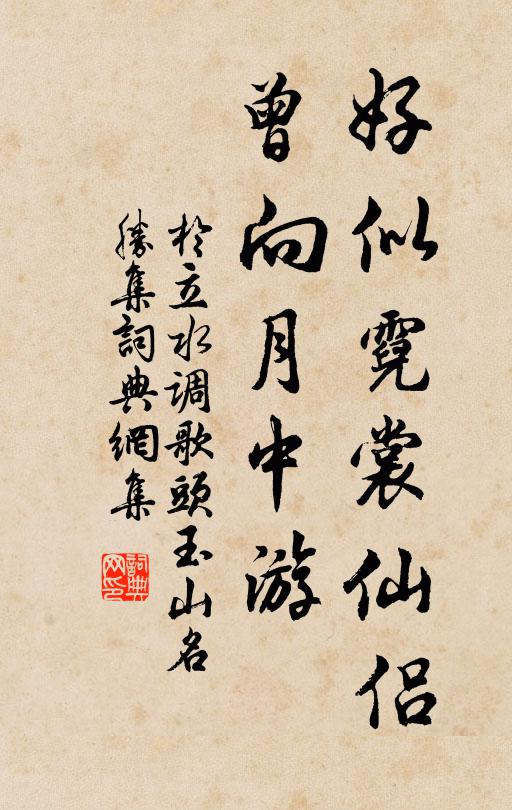 好似霓裳仙侣
曾向月中游
於立水调歌頭玉山名
勝集詞典網集
詞典
网印